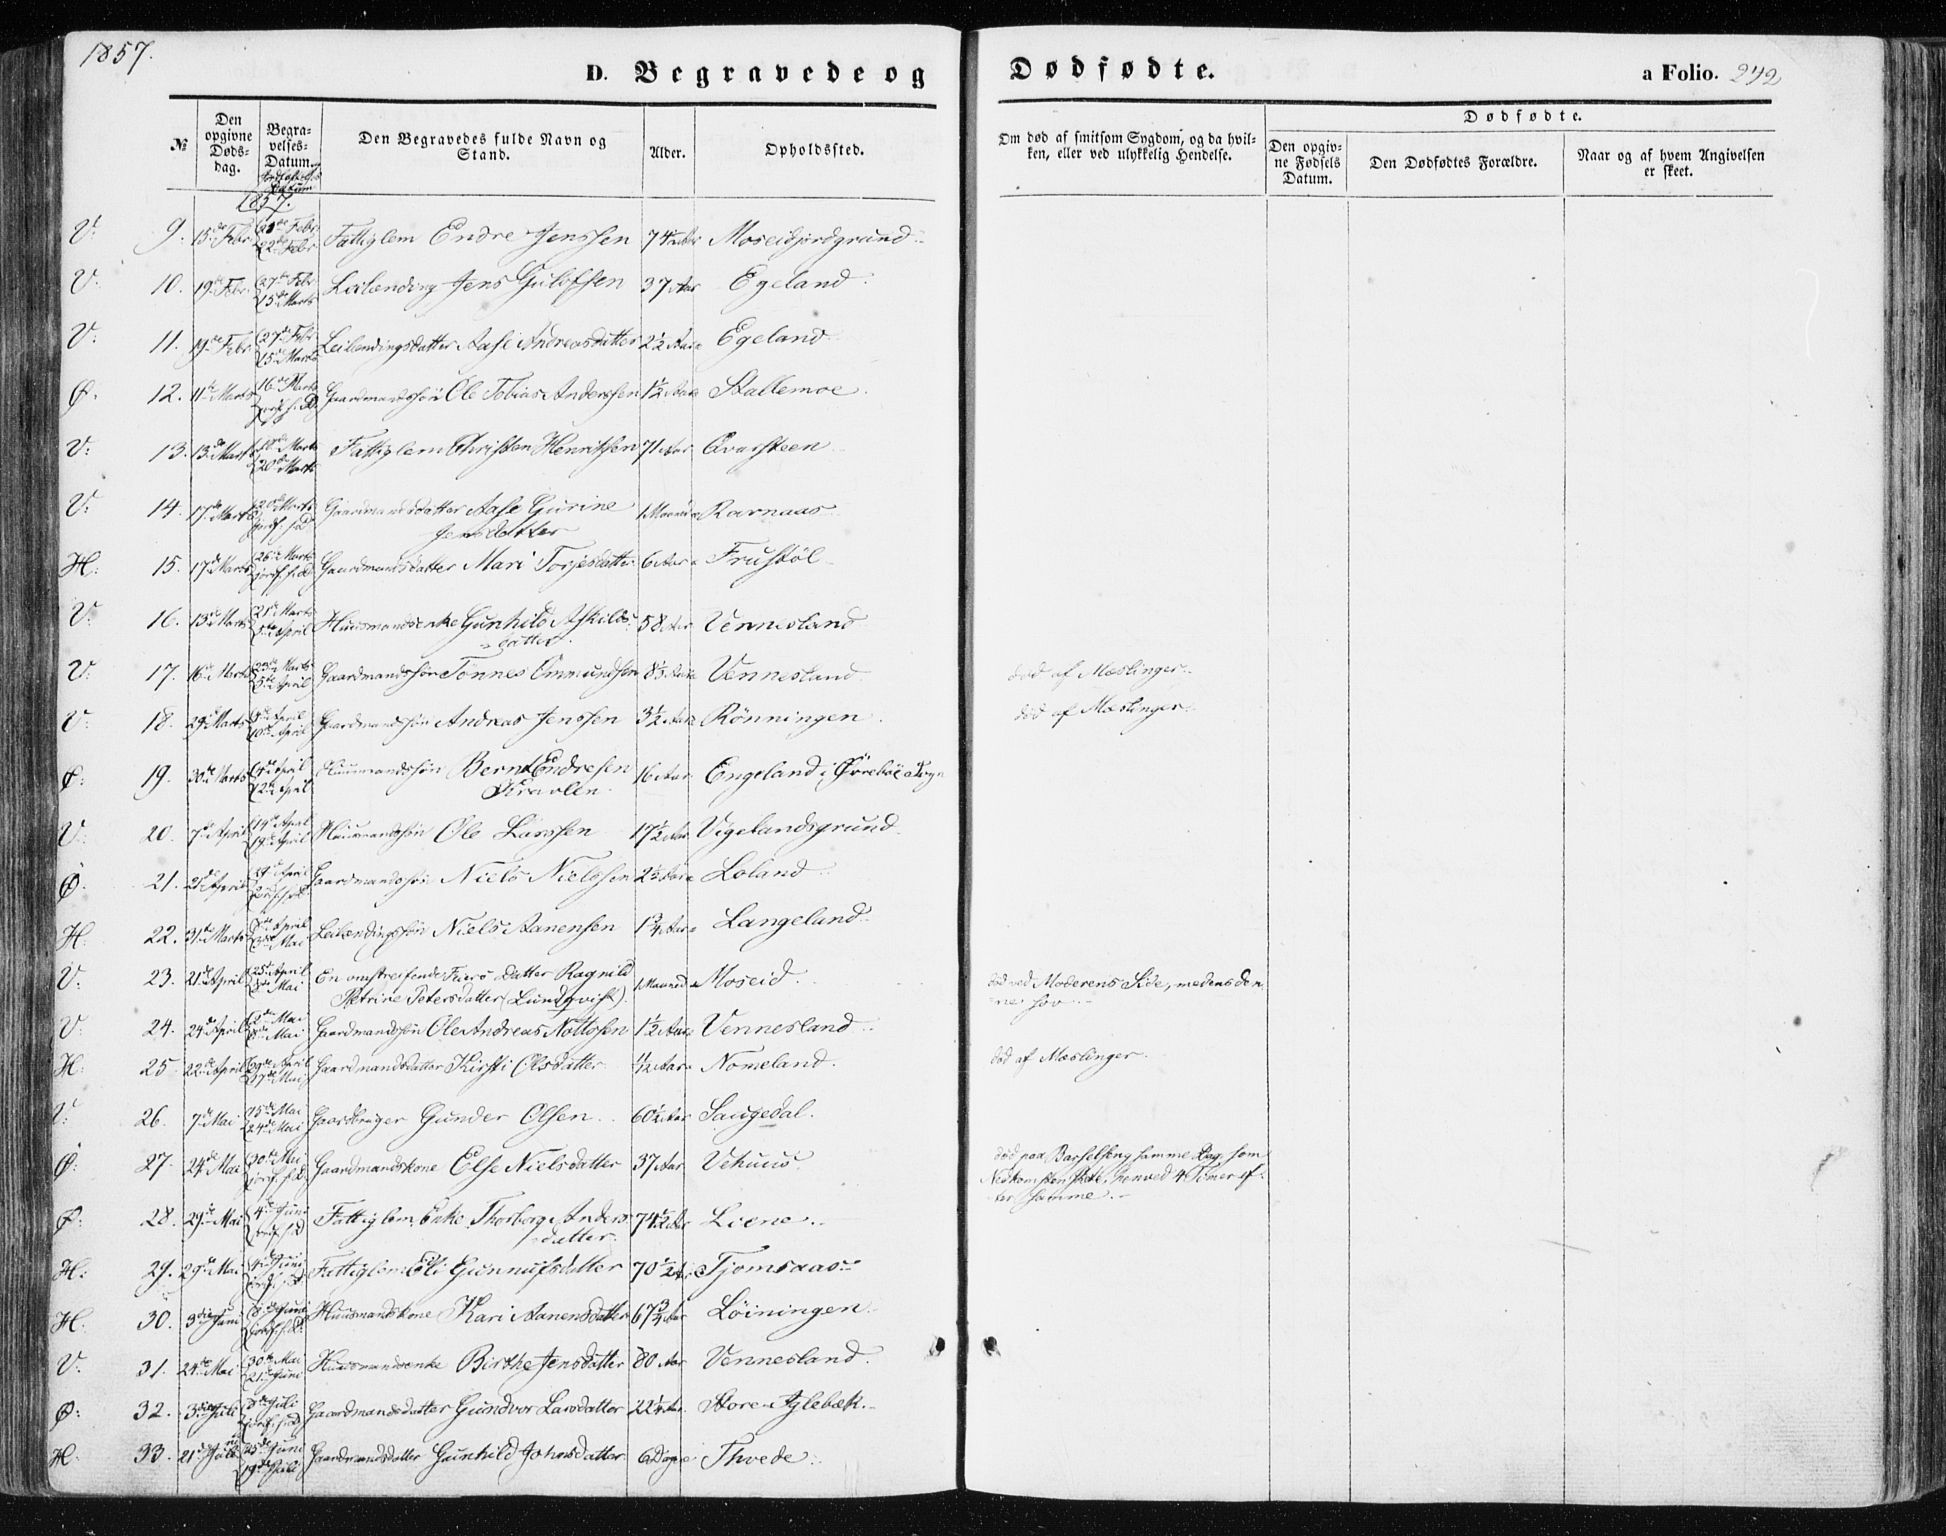 1857.
D. Begravede og Dødfødte. a Folio. 242
№ Den opgivne Dødsdag. Begravelses-Datum. Den Begravedes fulde Navn og Stand. Alder. Opholdssted. Om død af smitsom Sygdom, og da hvilken, eller ved ulykkelig Hendelse. Dødfødte. Den opgivne Fødsels Datum. Den Dødfødtes Forældre. Naar og af hvem Angivelsen er skeet.
1857.
V: 9. 15de Febr 21de Febr 22de Febr Fattiglem Endre Jenssen 74 1/2 Aar Moseidjordgrund
V: 10. 19de Febr. 27de Febr 15de Marts Leilending Jens Gulofsen 37 Aar Egeland
V: 11. 19de Febr 27de Febr 15de Marts Leilendingsdatter Aase Andreasdatter 2 1/2 Aar Egeland
Ø. 12. 11te Marts 16de Marts jordf. s. D. Gaardmandssön Ole Tobias Anderssen 1 1/2 Aar Stallemoe.
V: 13. 13de Marts 18de Marts 20de Marts Fattiglem Christen Henriksen 71 Aar Qvarsteen
V: 14. 17de Marts 20de Marts jordf. s. D. Gaardmandsdatter Aase Gurine
Jensdatter 1 Maaned Ravnaas
H: 15. 17de Marts 26de Marts jordf. s. D. Gaardmandsdatter Mari Torjesdatter 6 Aar Frustöl
V: 16. 13de Marts 21de Marts 5te April Huusmandsenke Gunhild Askilds-
datter. 58 Aar Vennesland
V: 17. 16de Marts 23de Marts 5te April Gaardmandssön Tönnes Ommundsen 8 1/2 Aar Vennesland død af Mæslinger.
V: 18. 29de Marts 10de April Gaardmandssön Andreas Jenssen 3 1/2 Aar Rönningen død af Mæslinger.
Ø: 19. 30te Marts April 12te April Huusmandssön Bernt Endresen
16 Aar Engeland i Øvrebøe Sogn
V: 20. 7de April 14de April 19de April Huusmandssön Ole Larssen 17 1/2 Aar Vigelandsgrund
Ø. 21. April 29de April jordf. s. D. Gaardmandssön Niels Nielssen 2 1/2 Aar Loland
H: 22. 31te Marts April 3die Mai Leilendingssön Niels Aanensen 1 3/4 Aar Langeland
V: 23. 21de April 25de April Mai En omstreifende Datter Ragnild
Petrine Petersdatter (Lundqvist). 1 Maaned Moseid. død ved Moderens Side, medens den-
ne sov.
V: 24. 24de April 2den Mai Mai Gaardmandssön Ole Andreas Nottosen 1 1/2 Aar Vennesland
H: 25 22de April April 17de Mai Gaardmandsdatter Kirsti Olsdatter 1/2 Aar Nomeland. død af Mæslinger.
V: 26. 7de Mai 15de Mai 24de Mai Gaardbruger Gunder Olsen 60 1/2 Aar Saugedal.
Ø: 27. 24de Mai 30te Mai jordf. s. D. Gaardmandskone Else Nielsdatter 37 Aar Vehuus. død paa Barselseng samme Dag, som
Nedkomsten skete, henved 4 Timer ef-
ter samme.
Ø: 28. 29de Mai 4de Juni jordf. s. D. Fattiglem, Enke Thorborg Anders-
datter. 74 1/2 Aar Liene.
H: 29. 29de Mai 4de Juni jordf. s. D. Fattiglem Eli Gunnufsdatter 70 1/2 Aar Tjomsaas
H: 30. 3die Juni 8de Juni jordf. s. D. Huusmandskone Kari Aanensdatter 67 3/4 Aar Löiningen
V: 31. 24de Mai 30te Mai 21de Juni Huusmandsenke Birthe Jensdatter 80 Aar Vennesland.
Ø: 32. 3die Juli Juli jordf. s. D. Gaardmandsdatter Gundvor Larsdatter 22 1/4 Aar Store-Iglebæk.
H. 33. 21de Juni 25de Juni 19de Juli Gaardmandsdatter Gunhild Johnsdatter 6 Dage Thvede